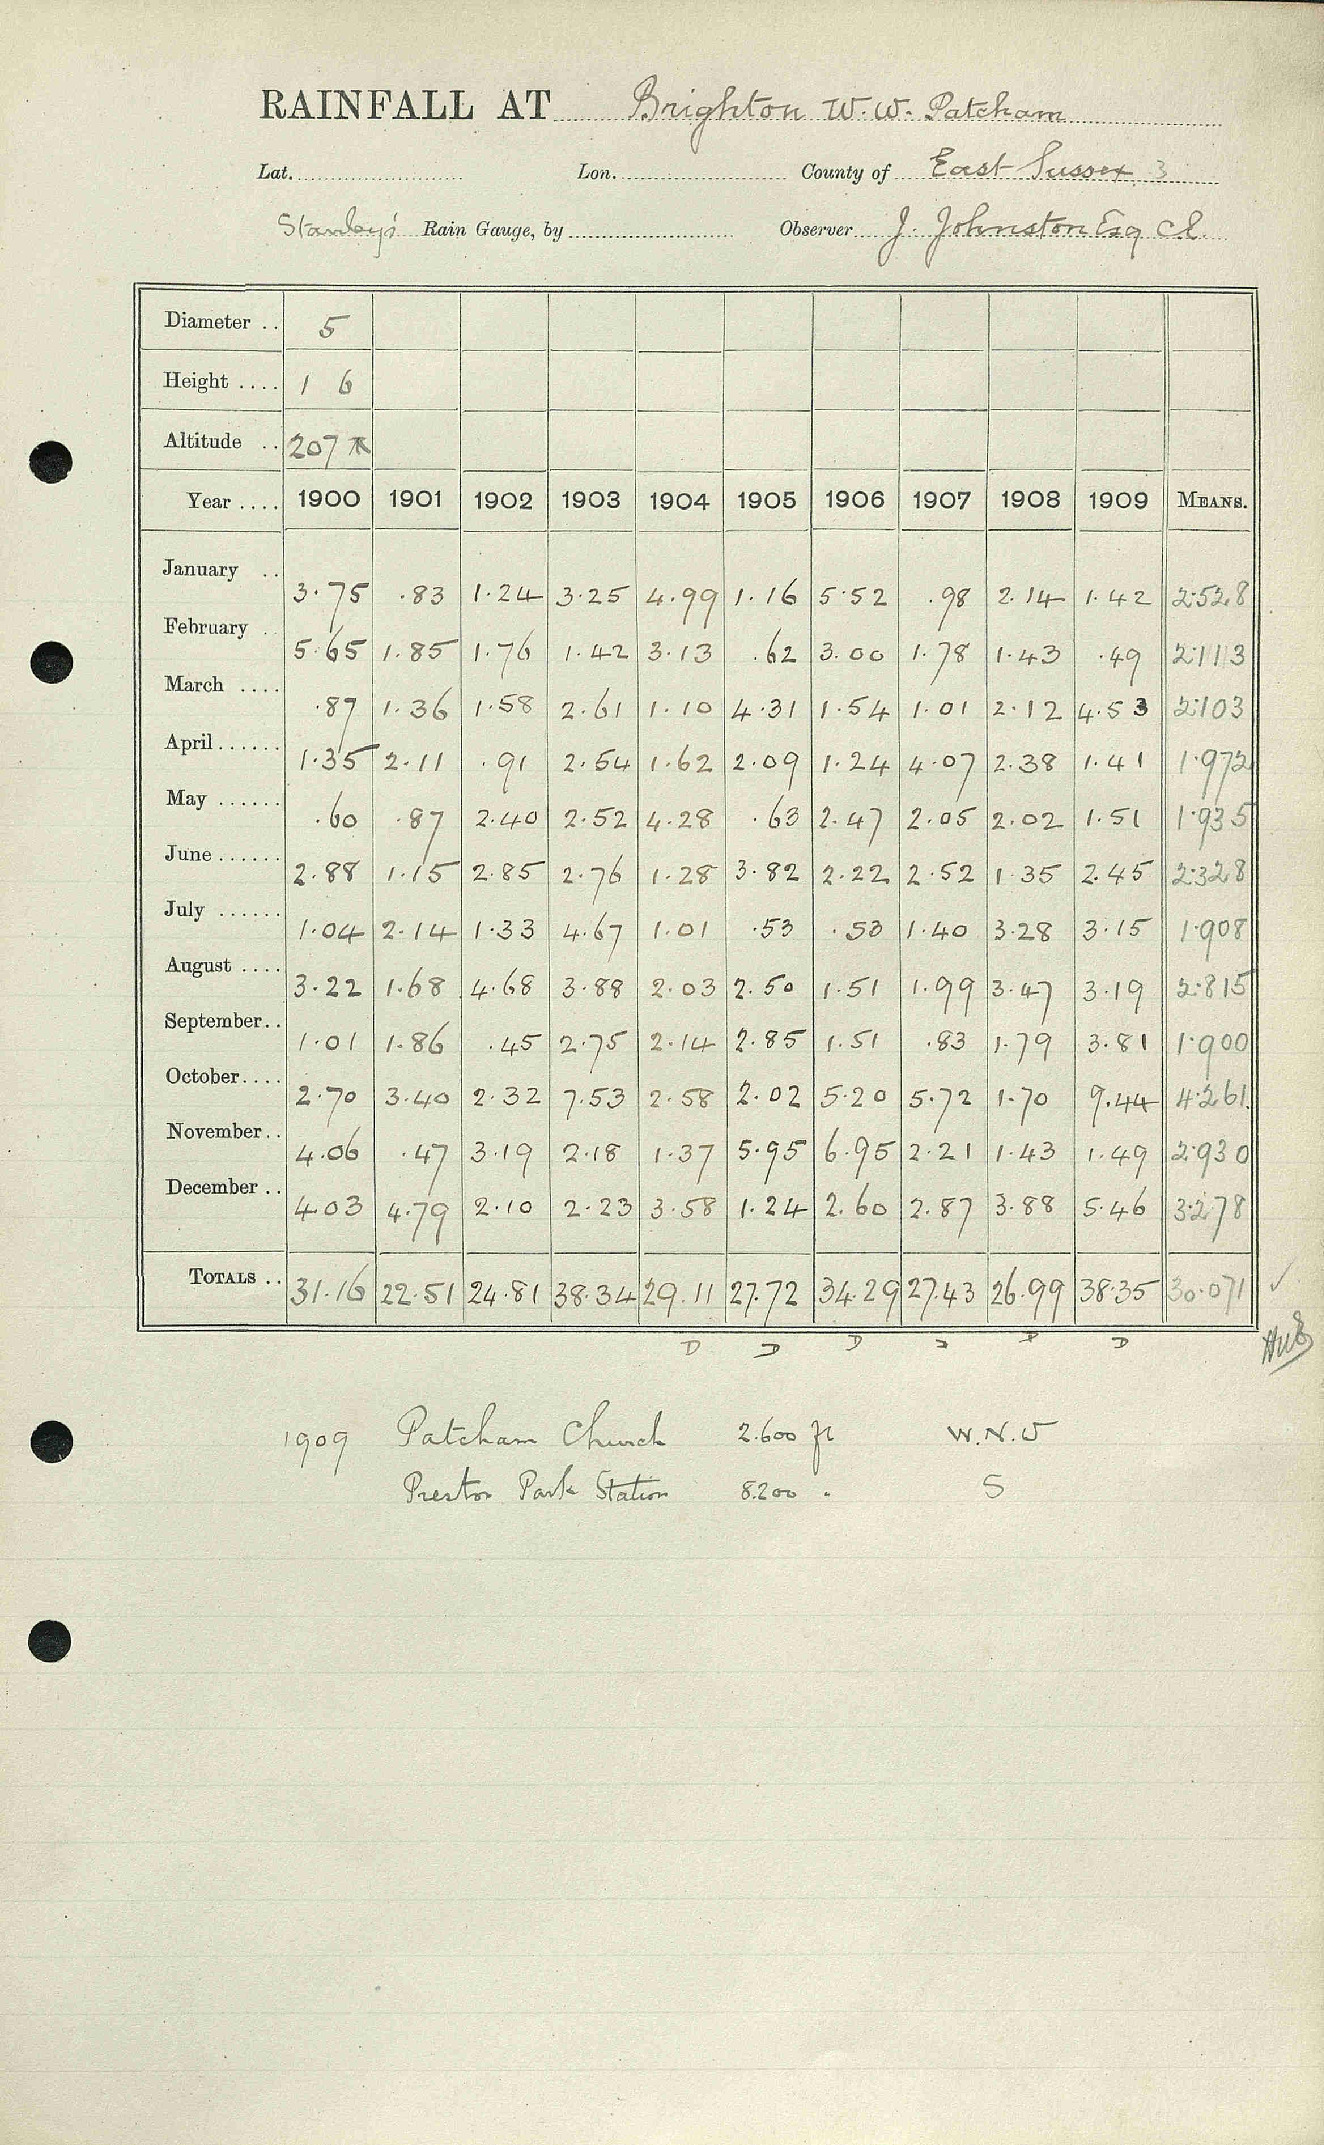 RAINFALL AT Brighton W.W. Patcham
Lat. Lon. County of East Sussex 3
Stanley's Rain Gauge, by Observer J. Johnston Esq C.E.
Diameter .. 5
Height .... 1 6
Altitude .. 207
Year .... 1900 1901 1902 1903 1904 1905 1906 1907 1908 1909 MEANS.
January .. 3.75 .83 1.24 3.25 4.99 1.16 5.52 .98 2.14 1.42 2.528
February .. 5.65 1.85 1.76 1.42 3.13 .62 3.00 1.78 1.43 .49 2.113
March .... .87 1.36 1.58 2.61 1.10 4.31 1.54 1.01 2.12 4.53 2.103
April ...... 1.35 2.11 .91 2.54 1.62 2.09 1.24 4.07 2.38 1.41 1.972
May ...... .60 .87 2.40 2.52 4.28 .63 2.47 2.05 2.02 1.51 1.935
June ...... 2.88 1.15 2.85 2.76 1.28 3.82 2.22 2.52 1.35 2.45 2.328
July ...... 1.04 2.14 1.33 4.67 1.01 .53 .53 1.40 3.28 3.15 1.908
August .... 3.22 1.68 4.68 3.88 2.03 2.50 1.51 1.99 3.47 3.19 2.815
September .. 1.01 1.86 .45 2.75 2.14 2.85 1.51 .83 1.79 3.81 1.900
October .... 2.70 3.40 2.32 7.53 2.58 2.02 5.20 5.72 1.70 9.44 4.261
November .. 4.06 .47 3.19 2.18 1.37 5.95 6.95 2.21 1.43 1.49 2.930
December .. 4.03 4.79 2.10 2.23 3.58 1.24 2.60 2.87 3.88 5.46 3.278
TOTALS .. 31.16 22.51 24.81 38.34 29.11 27.72 34.29 27.43 26.99 38.35 30.071 ✓
D D D D D D
1909 Patcham Church 2.600 ft W.N.W
Preston Park Station 8.200 " S